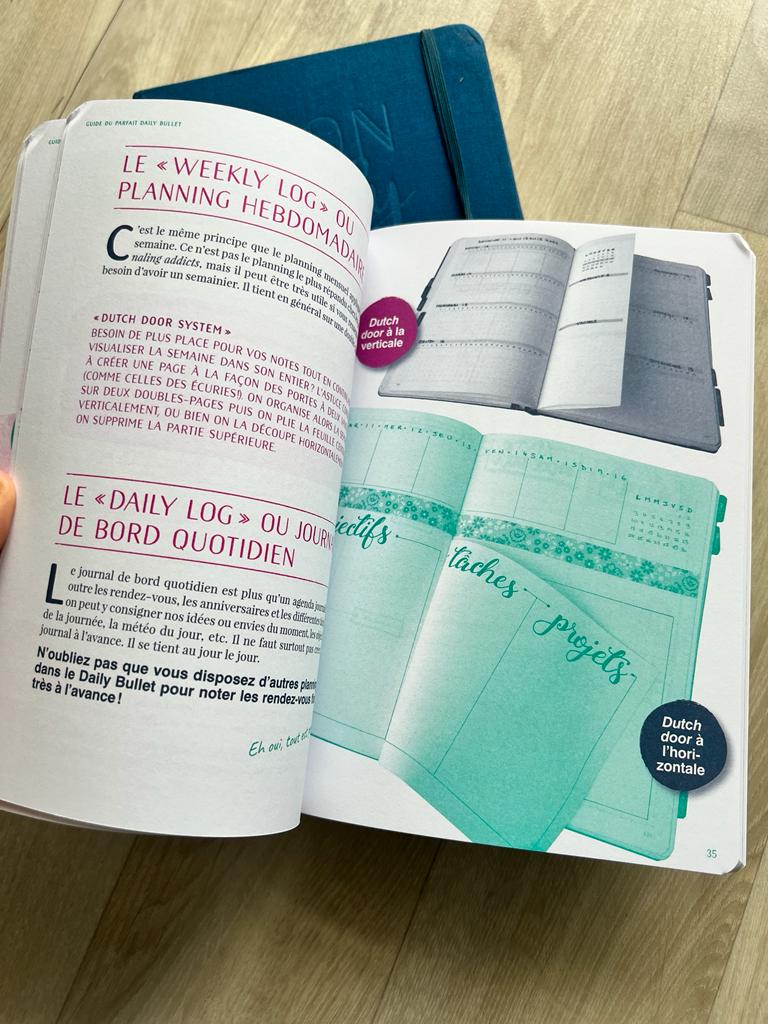 GUIDE DU PARFAIT DAILY BULLET
LE « WEEKLY LOG » OU
PLANNING HEBDOMADAIRE
C'est le même principe que le planning mensuel
semaine. Ce n'est pas le planning le plus répandu
naling addicts, mais il peut être très utile si vous
besoin d'avoir un semainier. Il tient en général sur une
« DUTCH DOOR SYSTEM »
BESOIN DE PLUS PLACE POUR VOS NOTES TOUT EN
VISUALISER LA SEMAINE DANS SON ENTIER ? L'ASTUCE
À CRÉER UNE PAGE À LA FAÇON DES PORTES À DEUX
(COMME CELLES DES ÉCURIES !). ON ORGANISE ALORS
SUR DEUX DOUBLES-PAGES PUIS ON PLIE LA FEUILLE
VERTICALEMENT, OU BIEN ON LA DÉCOUPE
ON SUPPRIME LA PARTIE SUPÉRIEURE.
LE « DAILY LOG » OU
DE BORD QUOTIDIEN
Le journal de bord quotidien est plus qu'un agenda
outre les rendez-vous, les anniversaires et les différentes
on peut y consigner nos idées ou envies du moment, les
de la journée, la météo du jour, etc. Il ne faut surtout pas
journal à l'avance. Il se tient au jour le jour.
N'oubliez pas que vous disposez d'autres
dans le Daily Bullet pour noter les rendez-vous
très à l'avance !
Eh oui, tout
Dutch
door à la
verticale
MER • 12 • JEU • 13
VEN • 14 SAM • 15 DIM • 16
L M M J V S D
tâches
projets
Dutch
door à
l'hori-
zontale
35